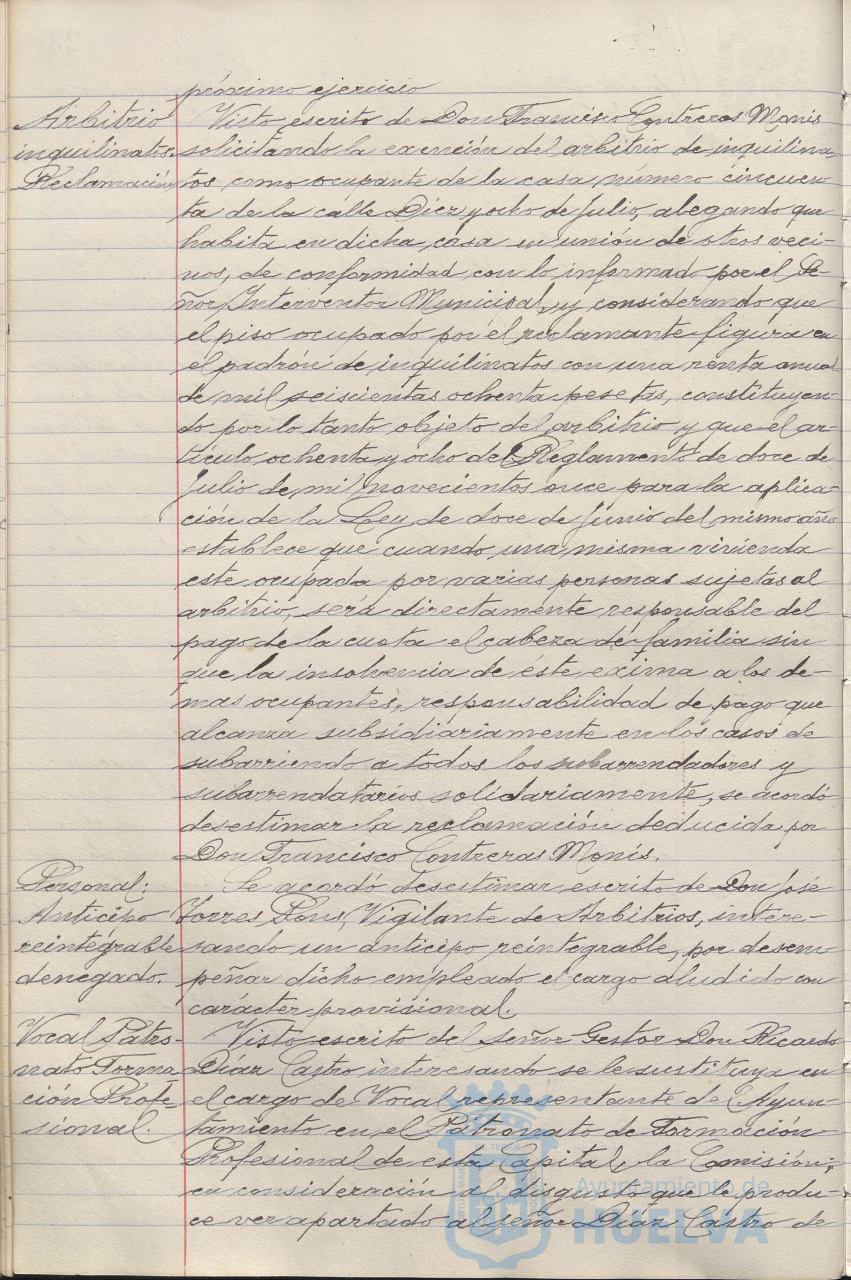 próximo ejercicio
Arbitrio
inquilinatos.
Reclamación
Visto escrito de Don Francisco Contreras Monís
solicitando la exención del arbitrio de inquilina-
tos, como ocupante de la casa número cincuen-
ta de la calle Diez y ocho de Julio, alegando que
habita en dicha casa en unión de otros veci-
nos, de conformidad con lo informado por el Se-
ñor Interventor Municipal, y considerando que
el piso ocupado por el reclamante figura en
el padrón de inquilinatos con una renta anual
de mil seiscientas ochenta pesetas, constituyen-
do por lo tanto objeto del arbitrio y que el ar-
tículo ochenta y ocho del Reglamento de doce de
Julio de mil novecientos once para la aplica-
ción de la Ley de doce de Junio del mismo año
establece que cuando una misma vivienda
este ocupada por varias personas sujetas al
arbitrio, será directamente responsable del
pago de la cuota el cabeza de familia sin
que la insolvencia de éste exima a los de-
mas ocupantes, responsabilidad de pago que
alcanza subsidiariamente en los casos de
subarriendo a todos los subarrendadores y
subarrendatarios solidariamente, se acordó
desestimar la reclamación deducida por
Don Francisco Contreras Monís.
Personal:
Anticipo
reintegrable
denegado.
Se acordó desestimar escrito de Don José
Torres Pons, Vigilante de Arbitrios, intere-
sando un anticipo reintegrable, por desem-
peñar dicho empleado el cargo aludido con
carácter provisional.
Vocal Patro-
nato Forma-
ción Profe-
sional.
Visto escrito del señor Gestor Don Ricardo
Díaz Castro interesando se le sustituya en
el cargo de Vocal representante del Ayun-
tamiento en el Patronato de Formación
Profesional de esta Capital, la Comisión,
en consideración al disgusto que le produ-
ce ver apartado al señor Díaz Castro de
Ayuntamiento de
HUELVA